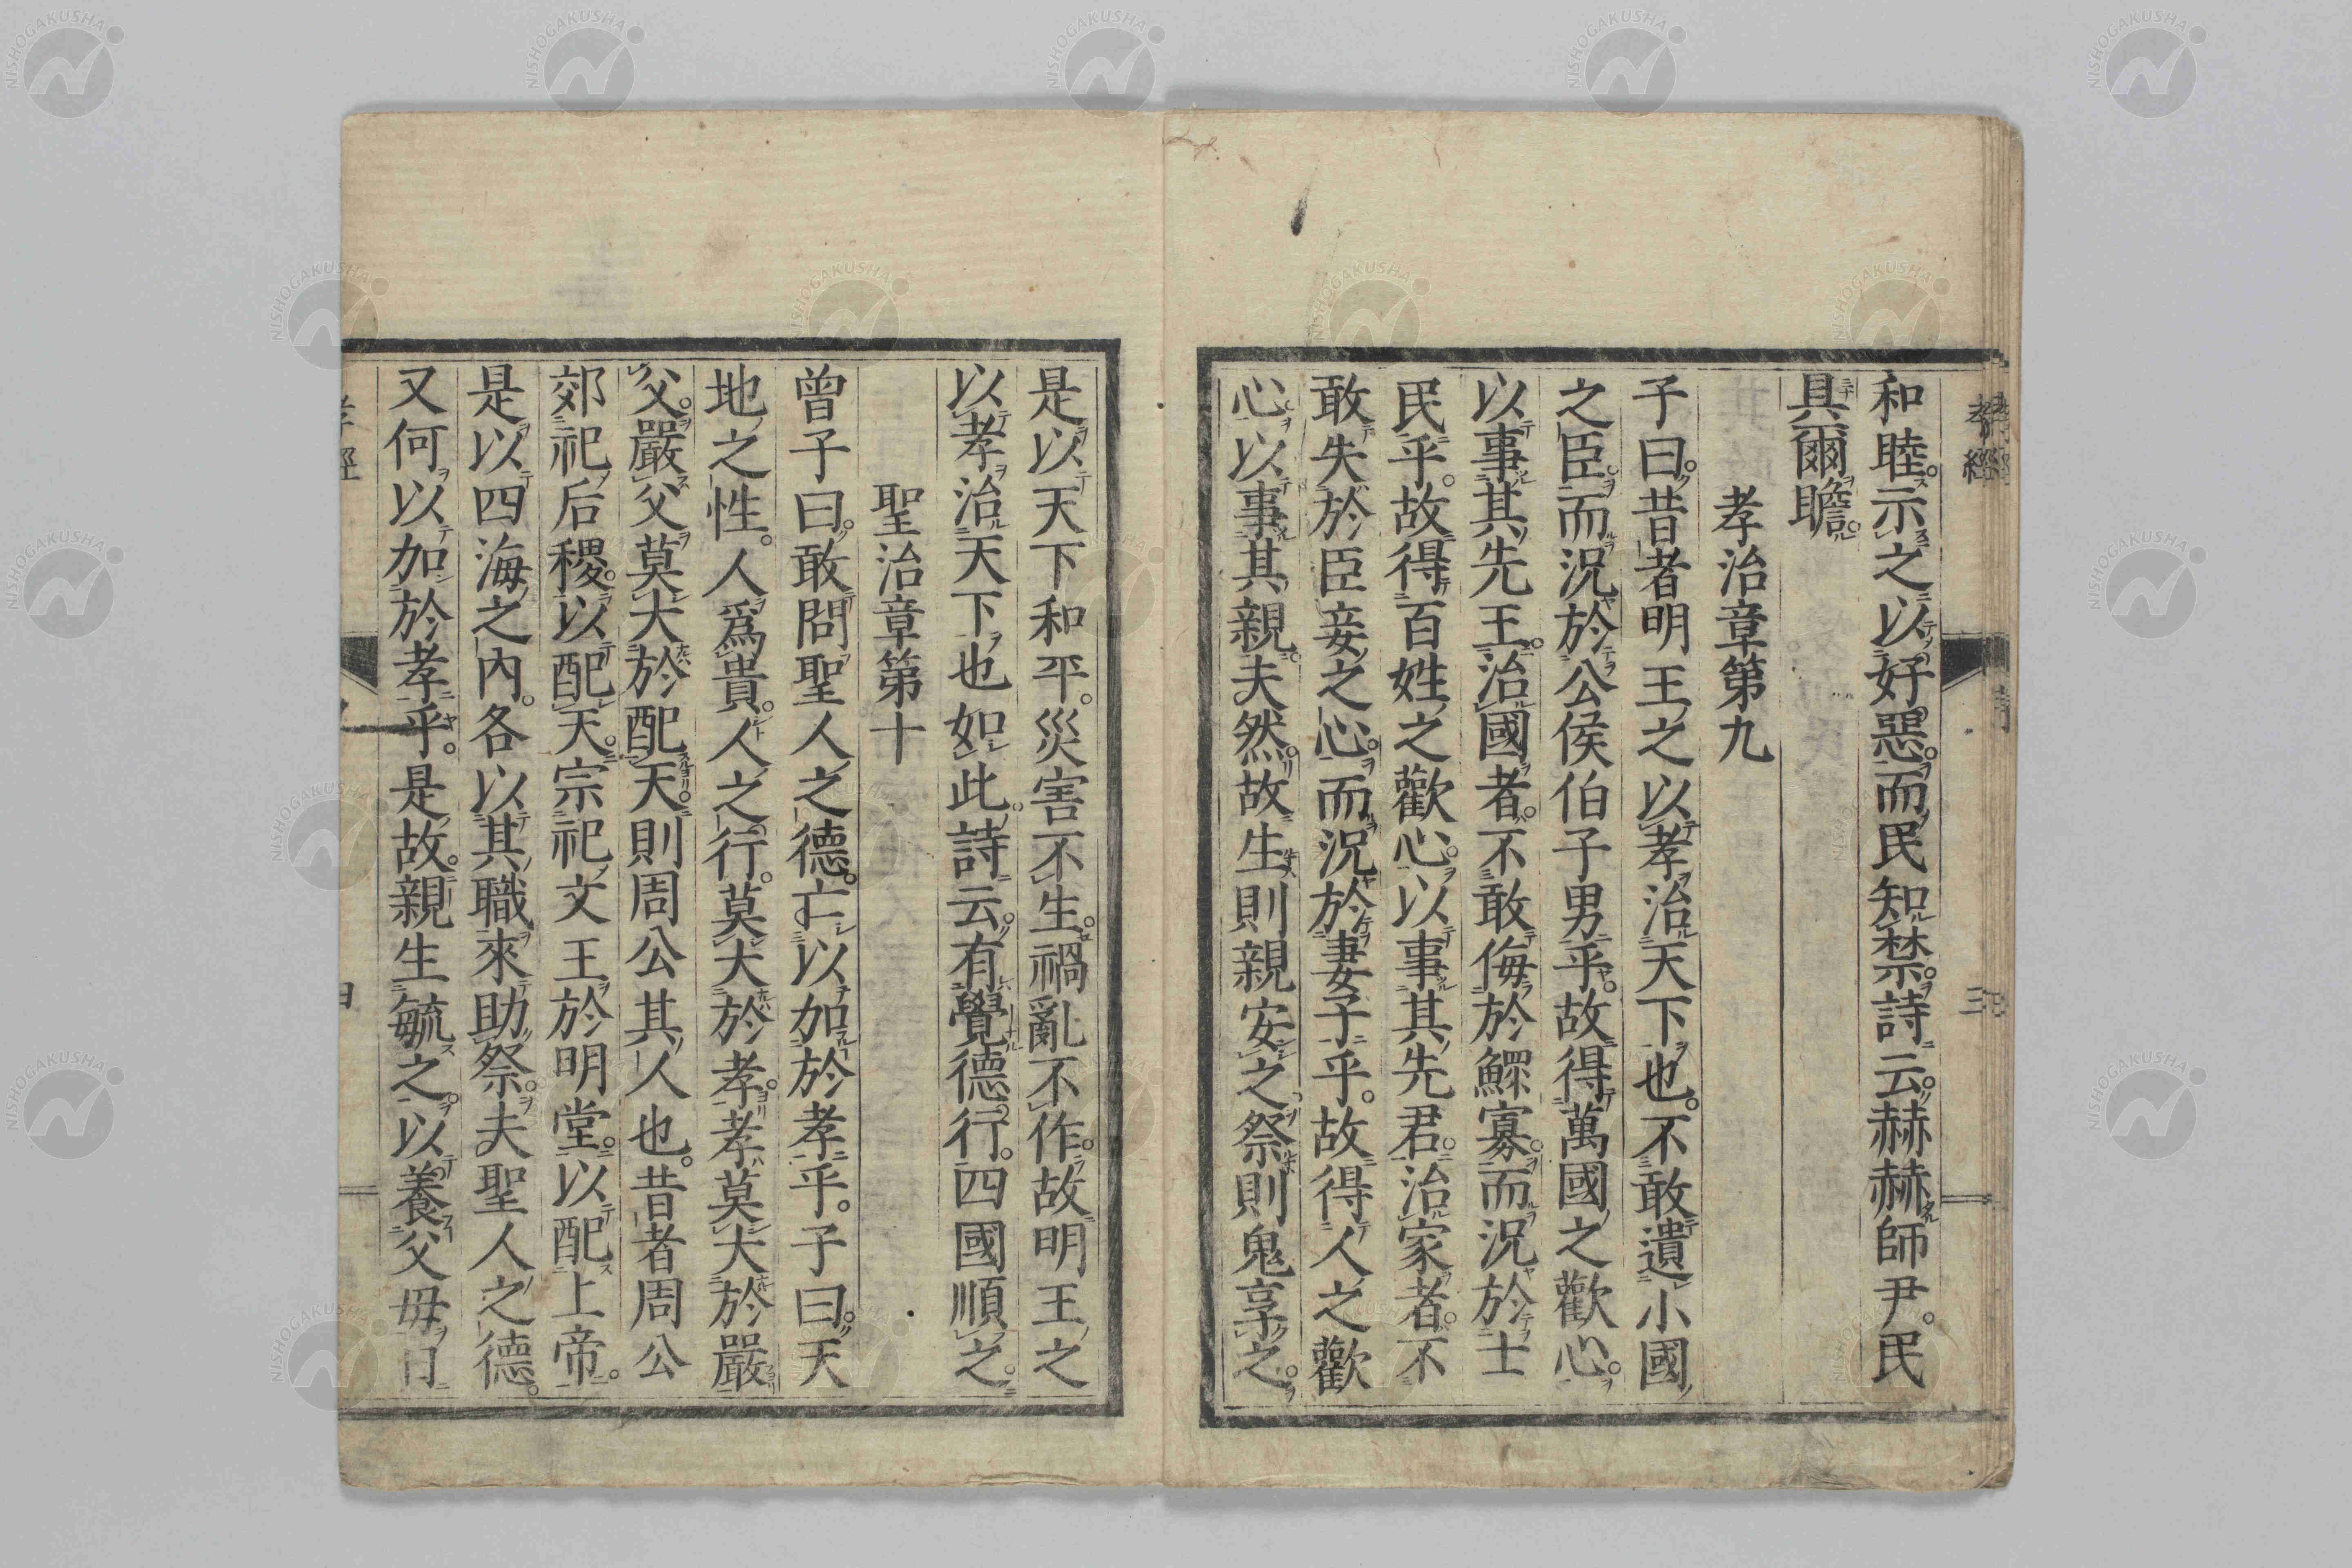 和睦。示之以好惡。而民知禁。詩云。赫赫師尹。民
具爾瞻。
孝治章第九
子曰。昔者明王之以孝治天下也。不敢遺小國
之臣。而況於公侯伯子男乎。故得萬國之歡心。
以事其先王。治國者。不敢侮於鰥寡。而況於士
民乎。故得百姓之歡心。以事其先君。治家者。不
敢失於臣妾之心。而況於妻子乎。故得人之歡
心。以事其親。夫然。故生則親安之。祭則鬼享之。
是以天下和平。災害不生。禍亂不作。故明王之
以孝治天下也如此。詩云。有覺德行。四國順之。
聖治章第十
曾子曰。敢問聖人之德。亡以加於孝乎。子曰。天
地之性。人爲貴。人之行。莫大於孝。孝莫大於嚴
父。嚴父莫大於配天。則周公其人也。昔者周公
郊祀后稷。以配天。宗祀文王於明堂。以配上帝。
是以四海之內。各以其職來助祭。夫聖人之德。
又何以加於孝乎。是故。親生毓之。以養父母日
孝經
三
NISHOGAKUSHA